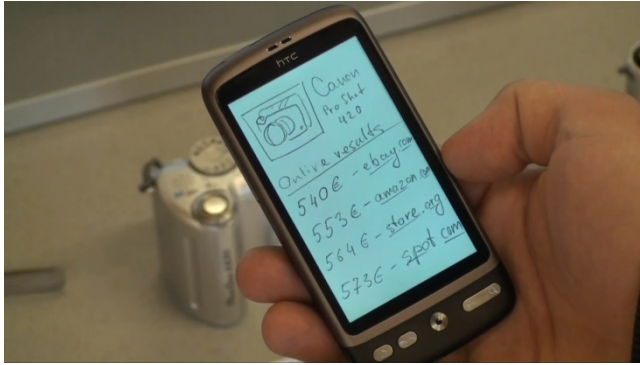 hTC
Canon
Pro Shot
420
Online results
540€ - ebay.com
553€ - amazon.com
564€ - store.org
573€ - spot.com